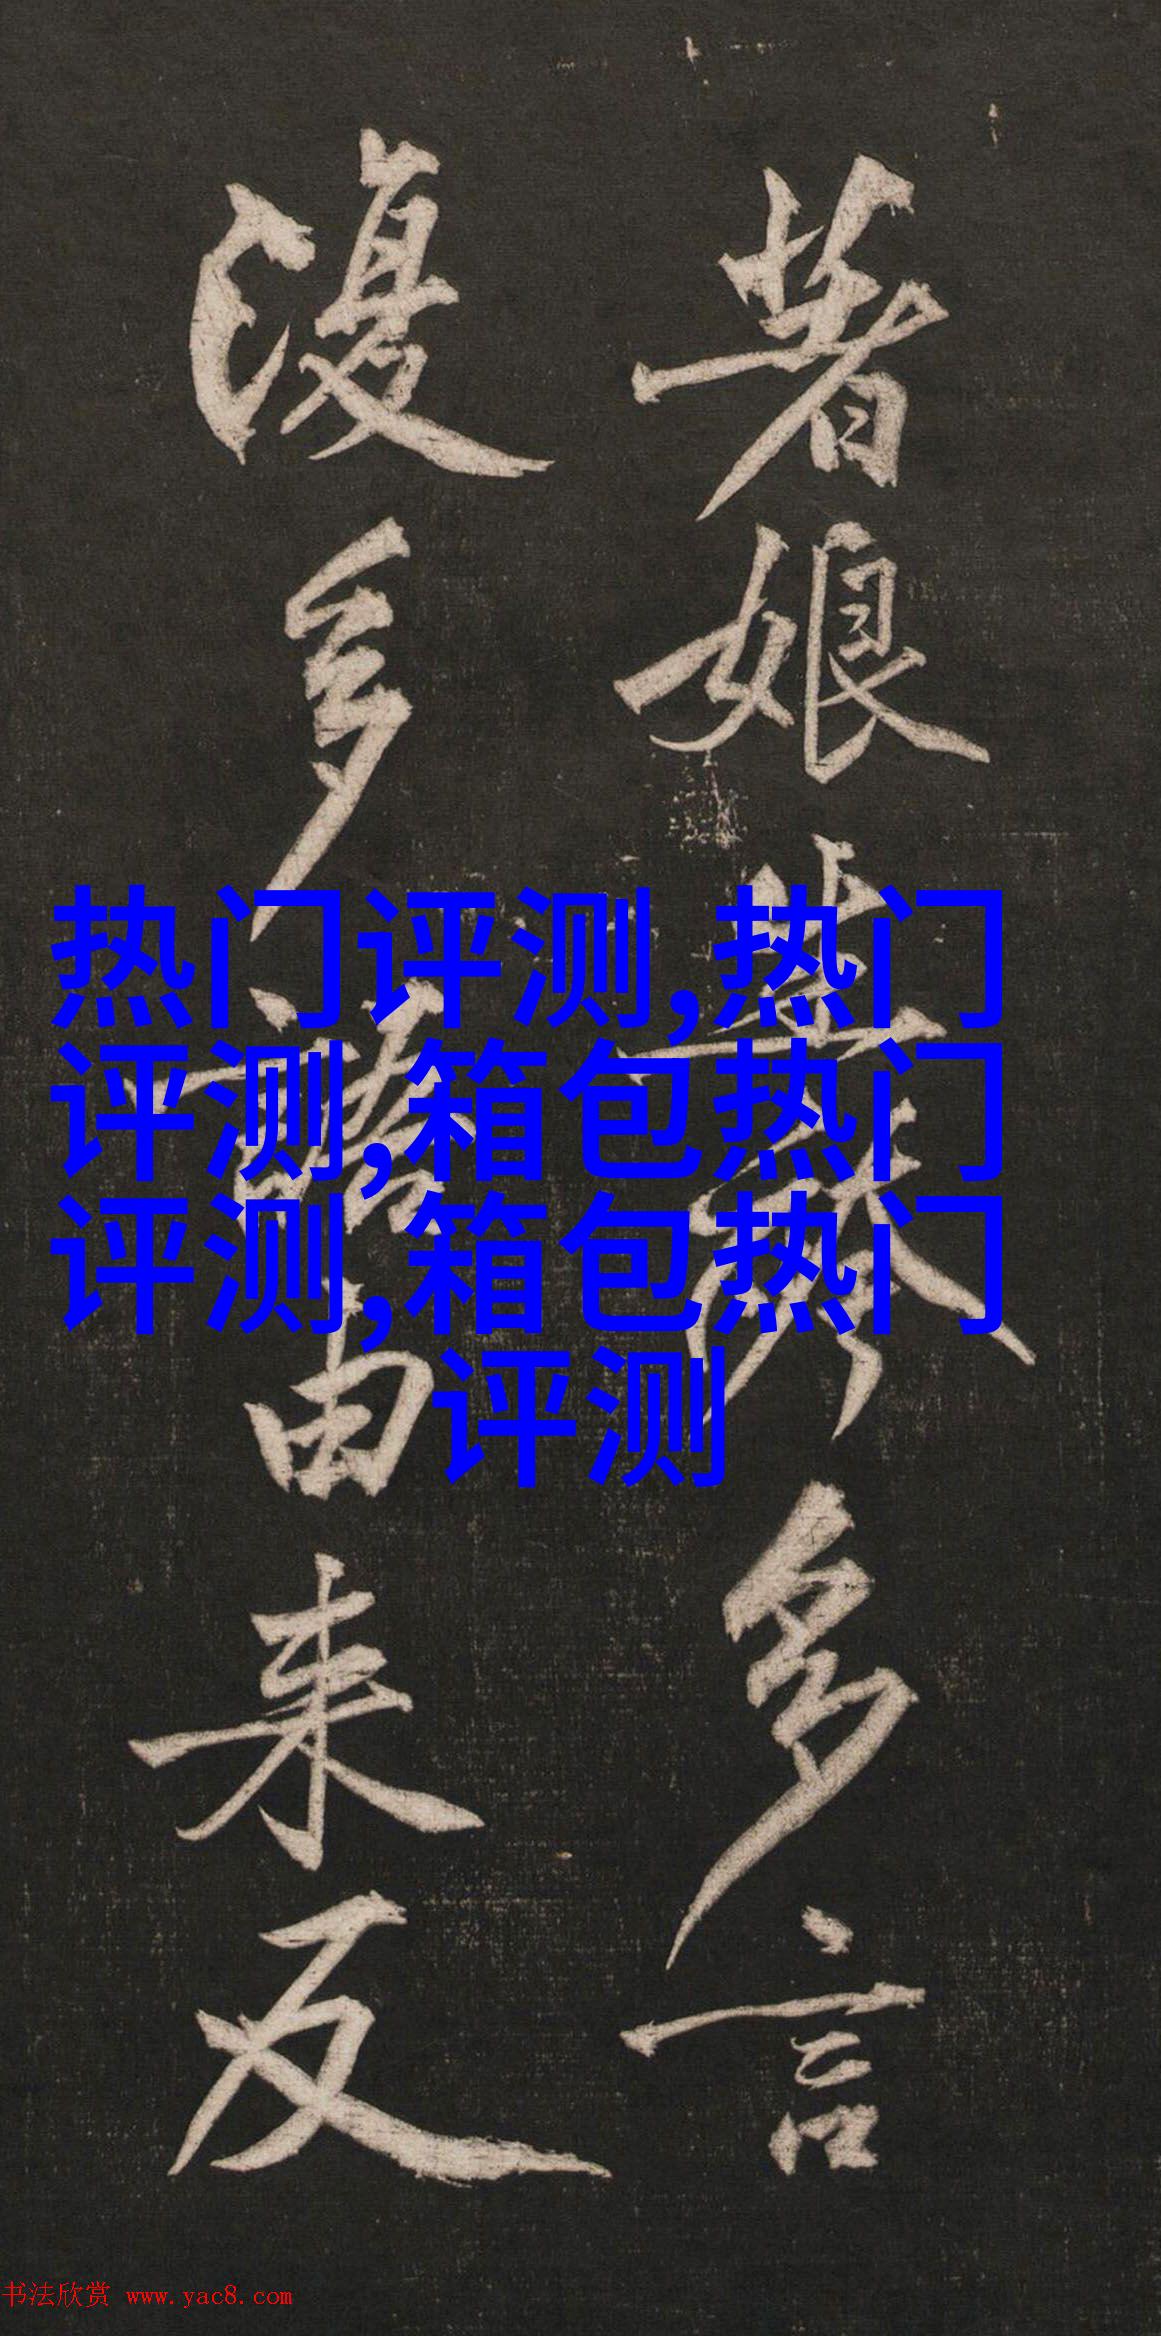 著娘豈无多言
复多語由来反
热门评测,热门
评测,箱包热门
评测,箱包热门
评测
书法欣赏 www.yac8.com